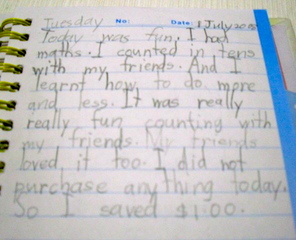 Tuesday No: Date: 1 July 20
Today was fun. I had
maths. I counted in tens
with my friends. And I
learnt how to do more
and less. It was really
really fun counting with
my friends. My friends
loved it too. I did not
purchase anything today.
So I saved $1.00.